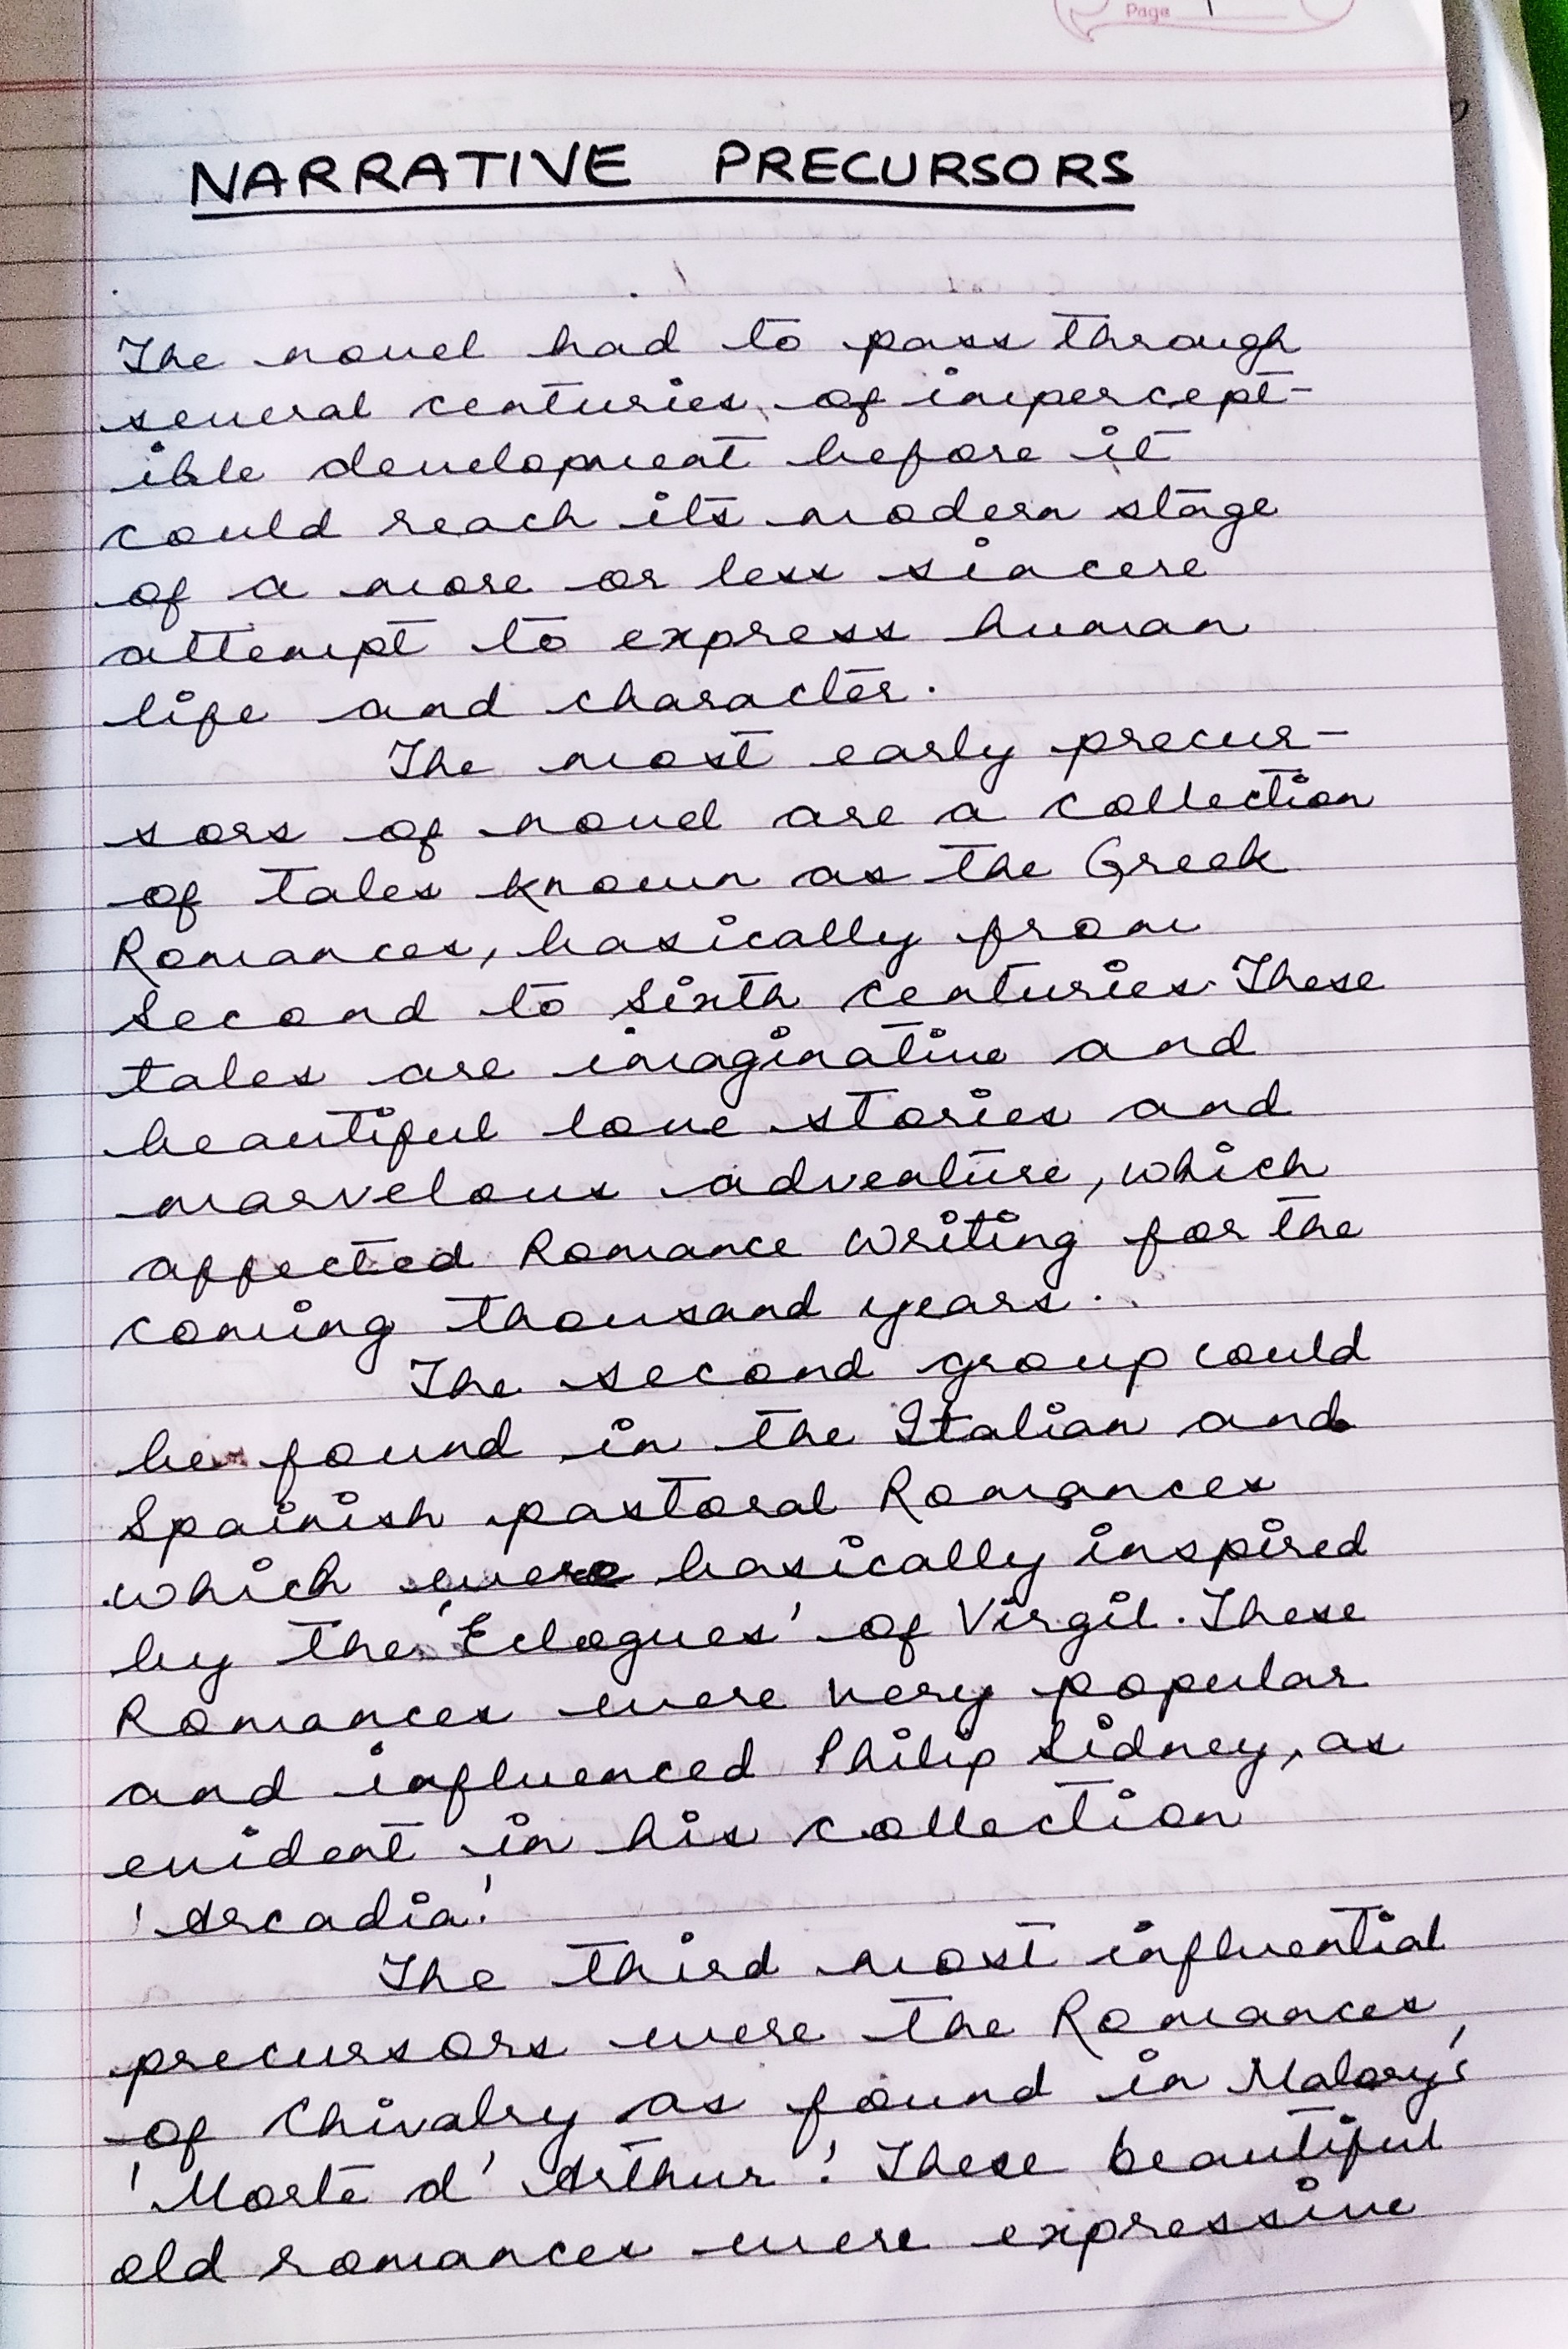 Page 1
NARRATIVE PRECURSORS
The novel had to pass through
several centuries of impercept-
ible development before it
could reach its modern stage
of a more or less sincere
attempt to express human
life and character.
The most early precur-
sors of novel are a collection
of tales known as the Greek
Romances, basically from
Second to Sixth centuries. These
tales are imaginative and
beautiful love stories and
marvelous adventure, which
affected Romance Writing for the
coming thousand years.
The second group could
be found in the Italian and
Spainish pastoral Romances
which were basically inspired
by the 'Eclogues' of Virgil. These
Romances were very popular
and influenced Philip Sidney, as
evident in his collection
'Arcadia.'
The third most influential
precursors were the Romances
of Chivalry as found in Malory's
'Morte d' Arthur'. These beautiful
old romances were expressive